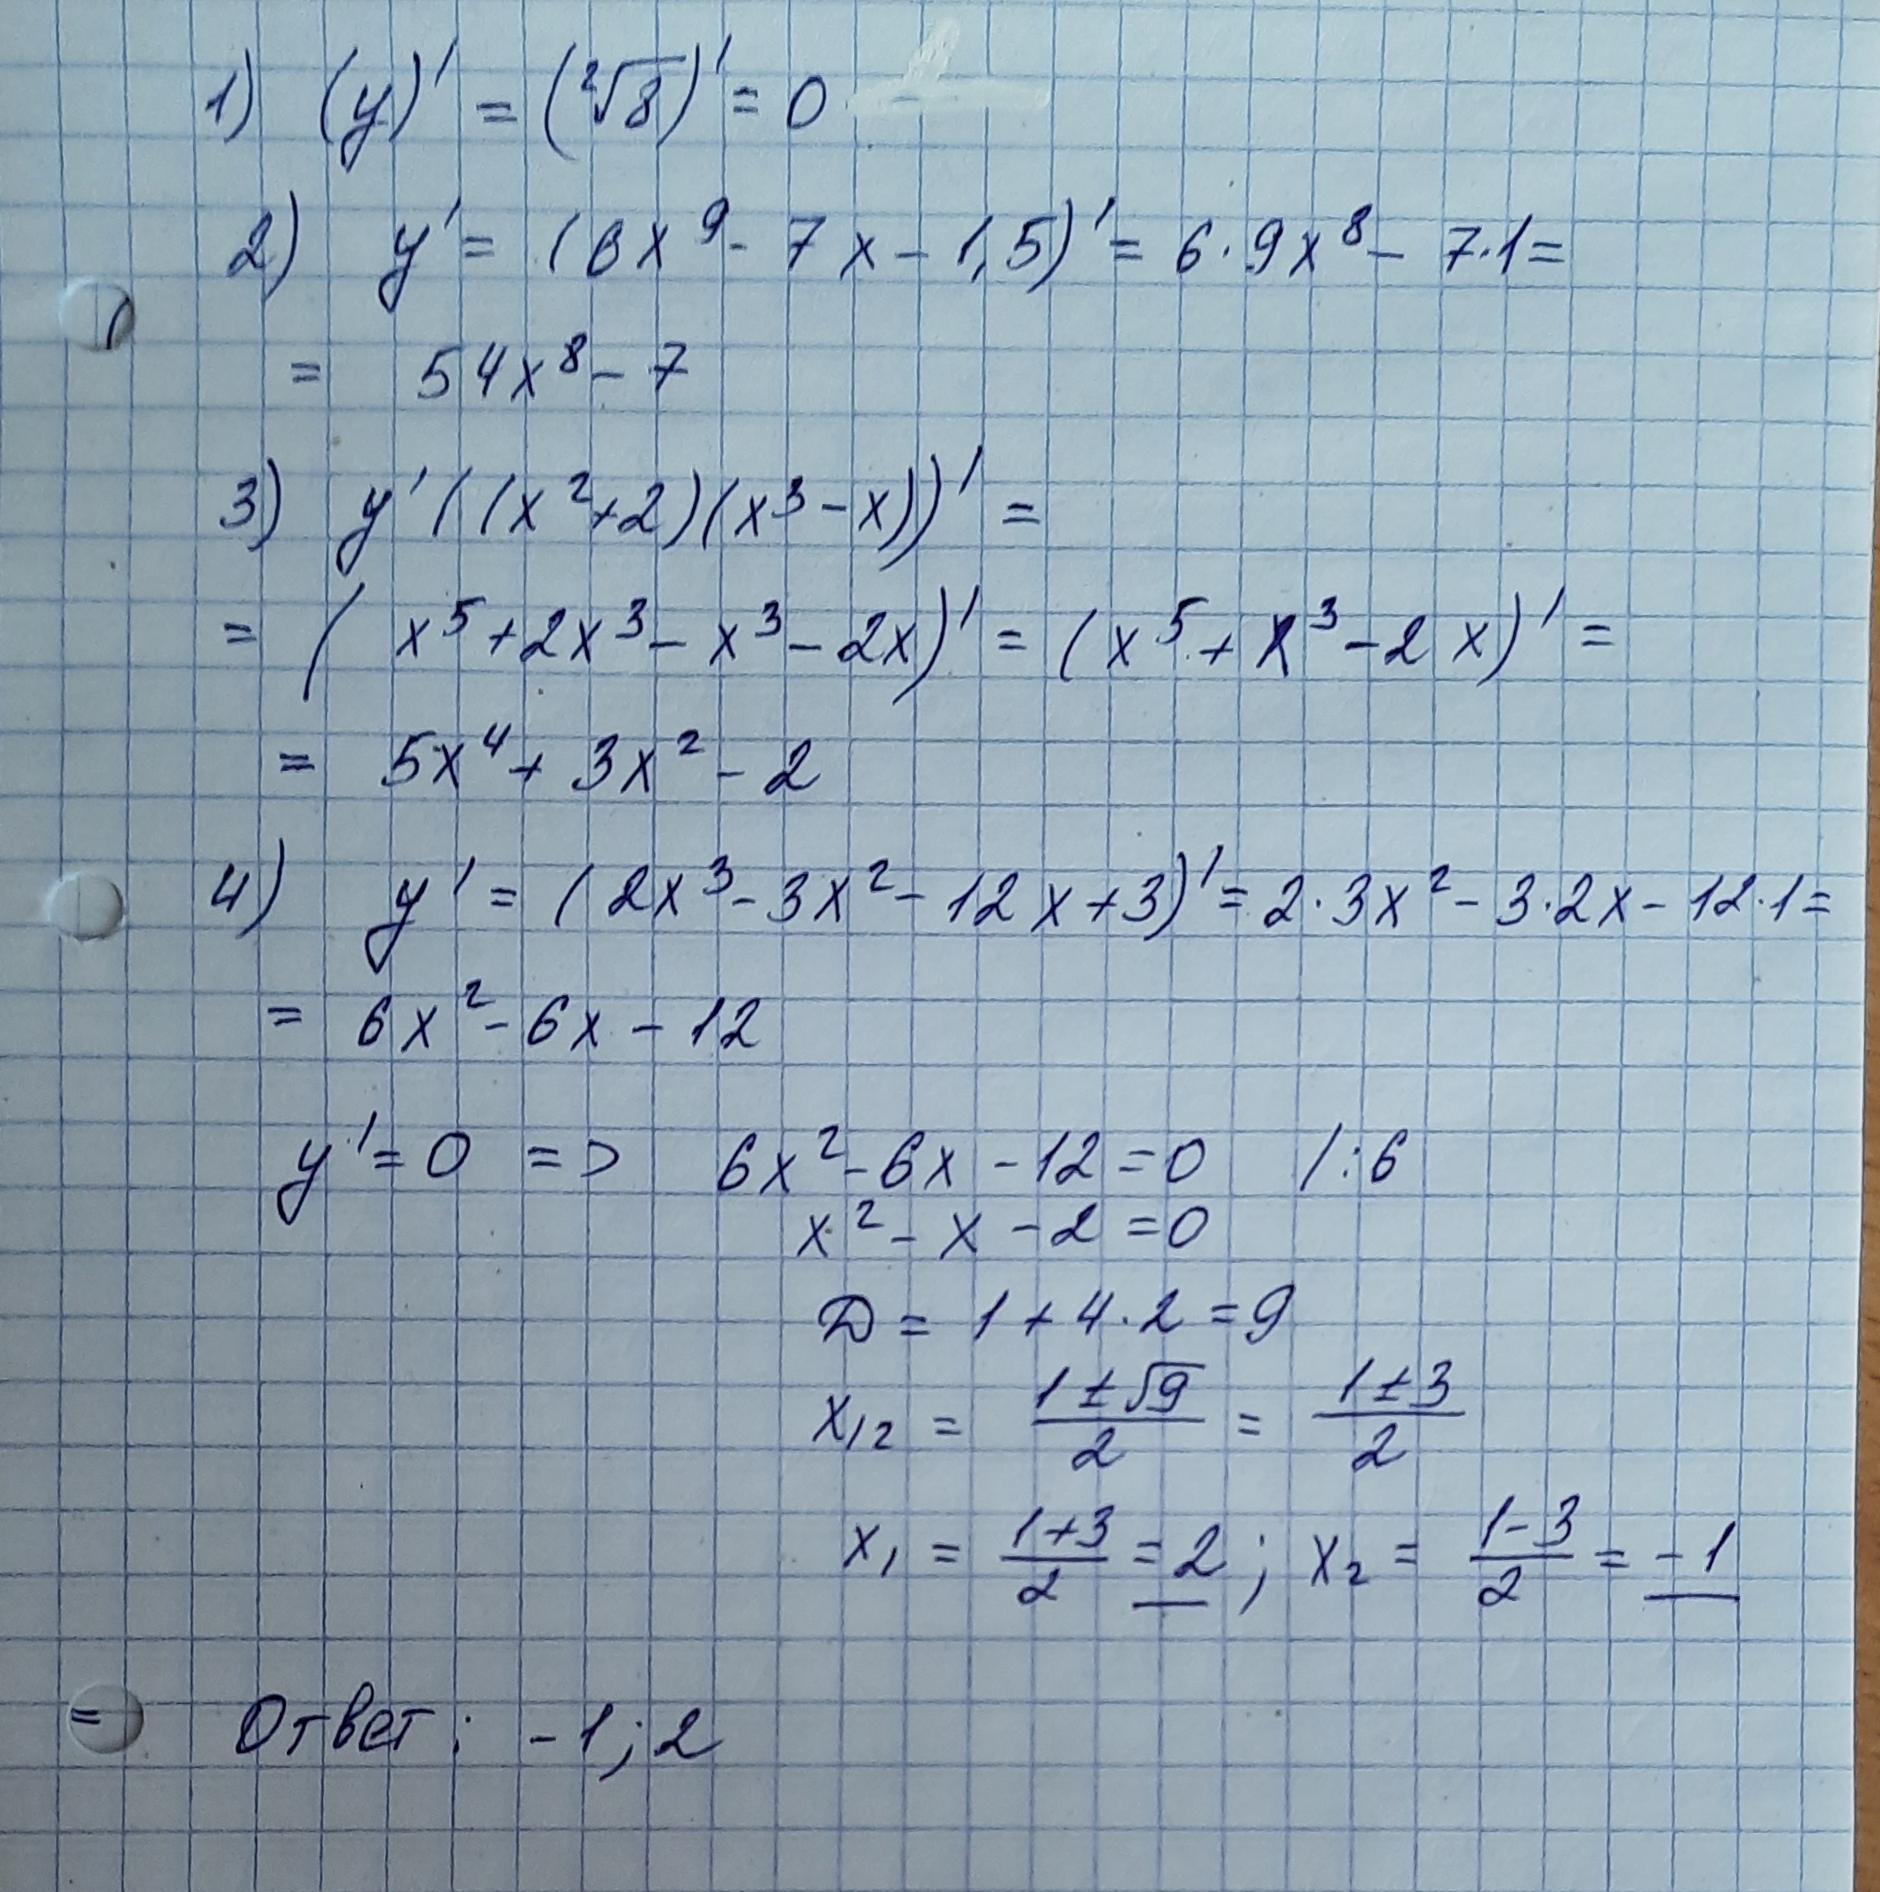 1) (y)' = (²√8)' = 0
2) y' = (6x⁹ - 7x - 1,5)' = 6·9x⁸ - 7·1 =
= 54x⁸ - 7
3) y'((x²+2)(x³-x))' =
= (x⁵+2x³-x³-2x)' = (x⁵+x³-2x)' =
= 5x⁴ + 3x² - 2
4) y' = (2x³-3x²-12x+3)' = 2·3x² - 3·2x - 12·1 =
= 6x² - 6x - 12
y' = 0 => 6x² - 6x - 12 = 0 /:6
x² - x - 2 = 0
D = 1 + 4·2 = 9
x₁₂ = (1±√9)/2 = (1±3)/2
x₁ = (1+3)/2 = 2; x₂ = (1-3)/2 = -1
Ответ: -1; 2